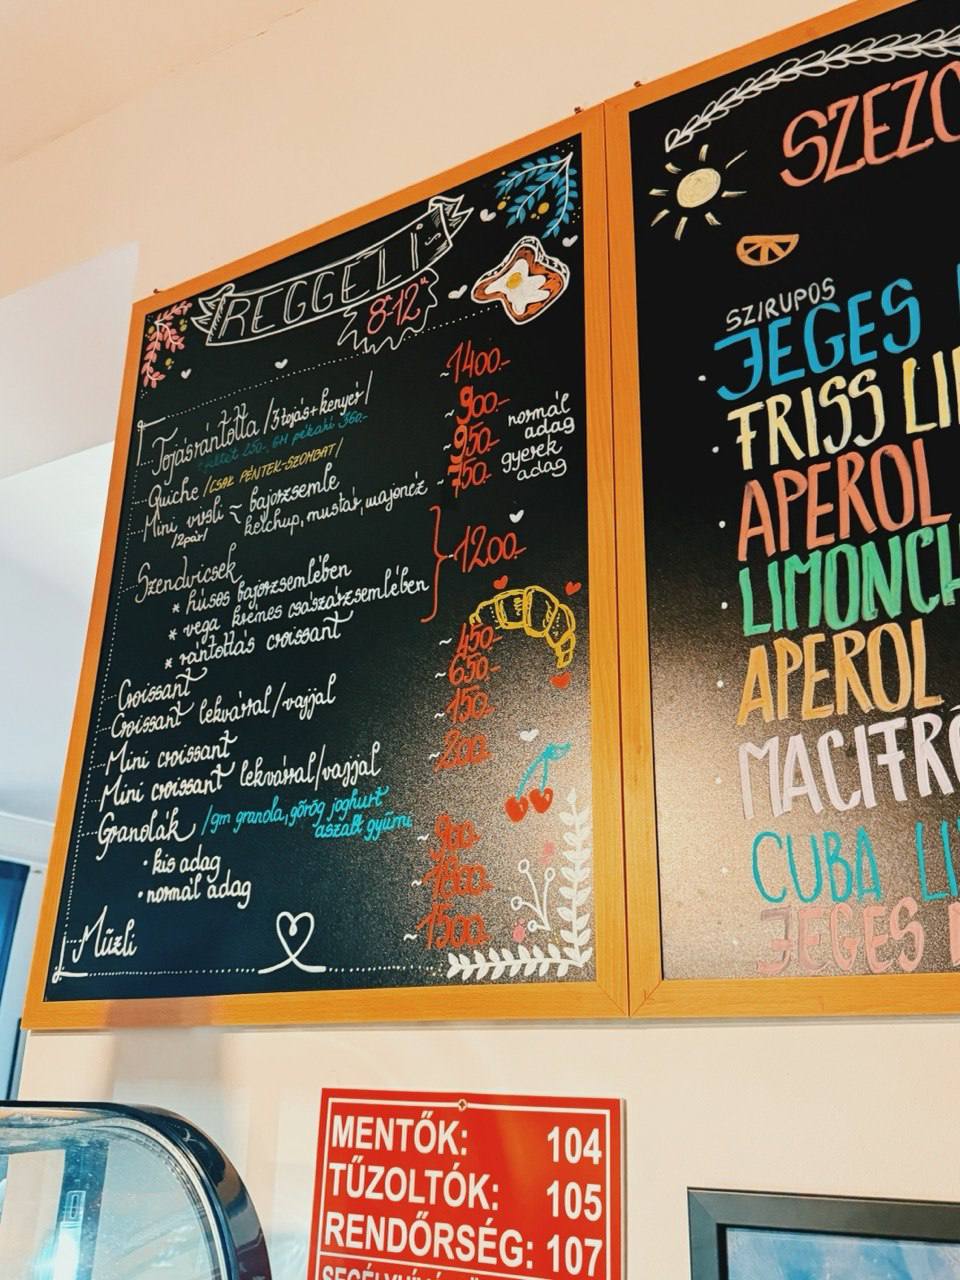 REGGELI
8-12
Tojásrántotta /3 tojás+kenyér/ ~1400.-
feltét 250.-, GM pékáru 360.-
Quiche /CSAK PÉNTEK-SZOMBAT/ ~900.-
Mini virsli ~ bajorzsemle ~950.- normál adag
/2pár/ ketchup, mustár, majonéz ~750.- gyerek adag
Szendvicsek ~1200.-
* húsos bajorzsemlében
* vega krémes császárzsemlében
* rántottás croissant
Croissant ~450.-
Croissant lekvárral/vajjal ~650.-
Mini croissant ~150.-
Mini croissant lekvárral/vajjal ~200.-
Granolák /gm granola, görög joghurt
aszalt gyüm
• kis adag ~900.-
• normál adag
Müzli ~1500.-
SZIRUPOS
JEGES
FRISS
APEROL
APEROL
CUBA
JEGES
MENTŐK: 104
TŰZOLTÓK: 105
RENDŐRSÉG: 107